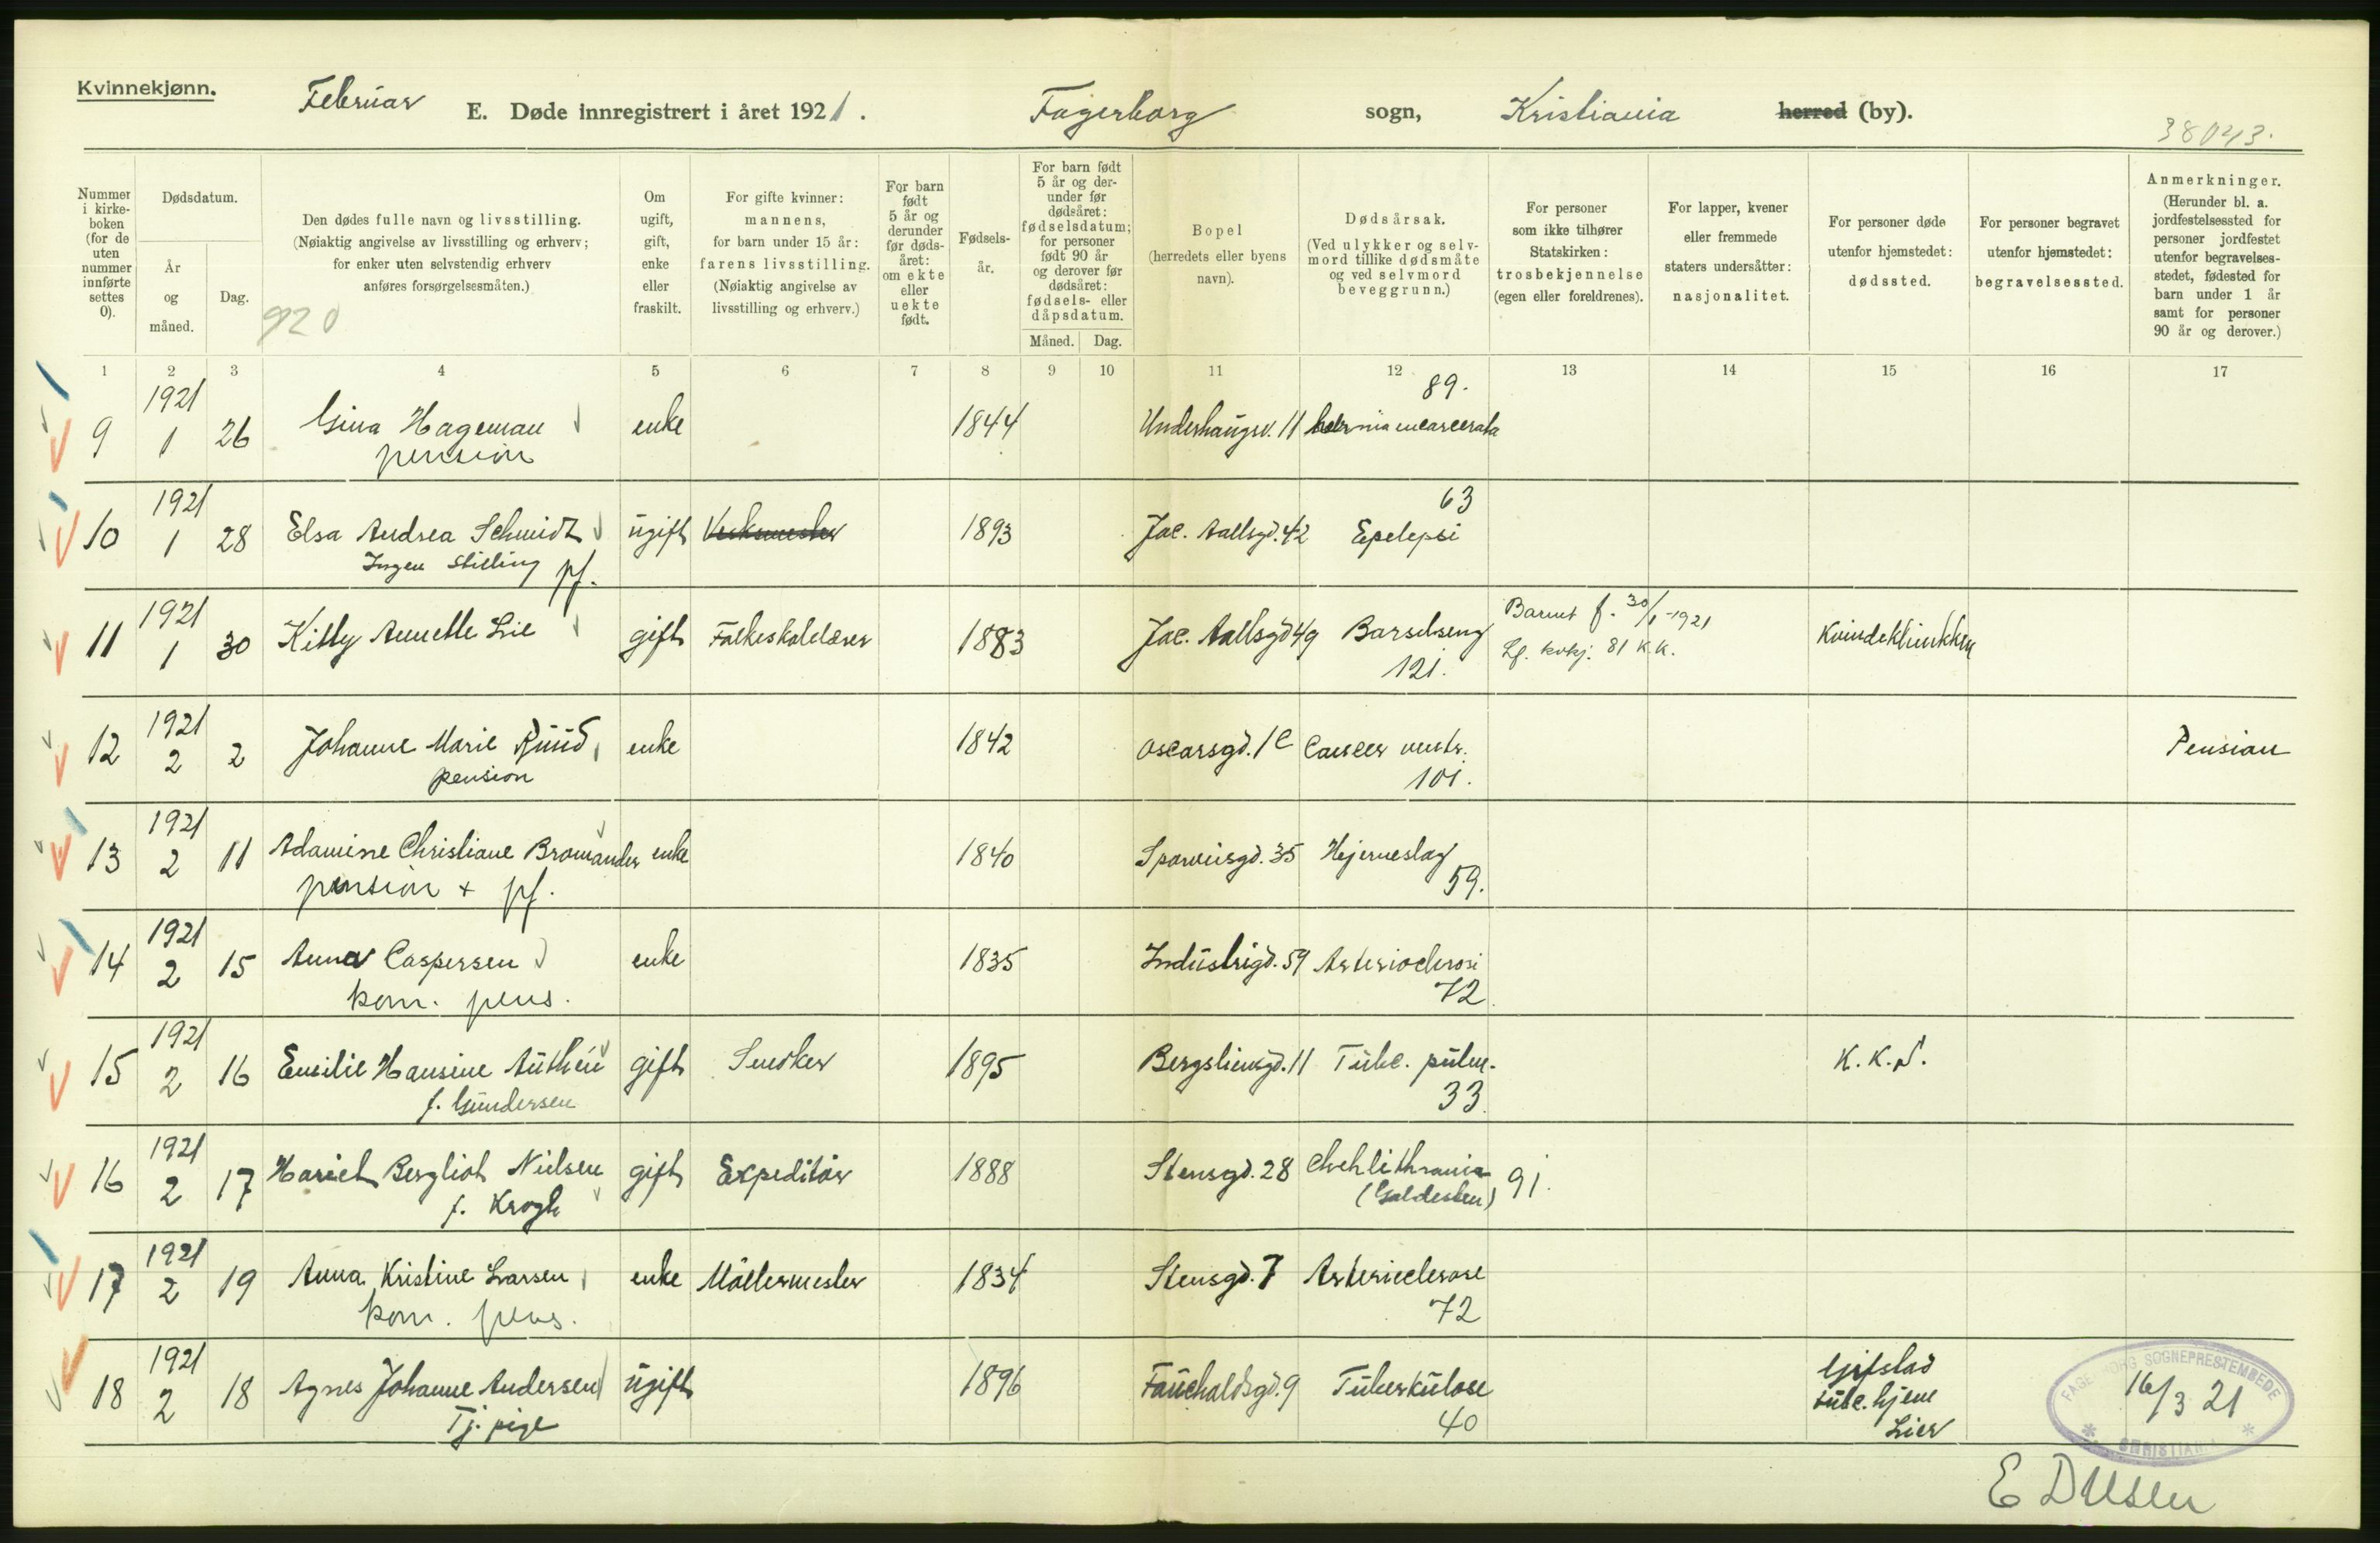 Kvinnekjønn.
Februar E. Døde innregistrert i året 1921. Fagerborg sogn, Kristiania herred (by).
38043.
Nummer i kirkeboken (for de uten nummer innførte settes 0).
Dødsdatum.
År og måned.
Dag.
Den dødes fulle navn og livsstilling.
(Nøiaktig angivelse av livsstilling og erhverv;
for enker uten selvstendig erhverv
anføres forsørgelsesmåten.)
920
Om ugift, gift, enke eller fraskilt.
For gifte kvinner: mannens, for barn under 15 år: farens livsstilling. (Nøiaktig angivelse av livsstilling og erhverv.)
For barn født 5 år og derunder før dødsåret: om ekte eller uekte født.
Fødselsår.
For barn født 5 år og derunder før dødsåret: fødselsdatum; for personer født 90 år og derover før dødsåret: fødsels- eller dåpsdatum.
Måned. Dag.
Bopel (herredets eller byens navn).
Dødsårsak. (Ved ulykker og selvmord tillike dødsmåte og ved selvmord beveggrunn.)
For personer som ikke tilhører Statskirken: trosbekjennelse (egen eller foreldrenes).
For lapper, kvener eller fremmede staters undersåtter: nasjonalitet.
For personer døde utenfor hjemstedet: dødssted.
For personer begravet utenfor hjemstedet: begravelsessted.
Anmerkninger. (Herunder bl. a. jordfestelsessted for personer jordfestet utenfor begravelsesstedet, fødested for barn under 1 år samt for personer 90 år og derover.)
1 2 3 4 5 6 7 8 9 10 11 12 13 14 15 16 17
1921 89.
9 1 26 Gina Hageman enke 1844 Underhaugsv. 11 hernia incarcerata
pension
1921 63
10 1 28 Elsa Andrea Schmidt ugift Verksmester 1893 Jac. Aallsgd. 42 Epelepsi
Ingen Stilling pf.
1921 Barnet f. 30/1-1921
11 1 30 Kitty Annette Lie gift Folkeskolelærer 1883 Jac. Aallsgd 49 Barselseng Kvindeklinikken
121. 81 K.K.
1921
12 2 2 Johanne Marie Ruud enke 1842 Oscarsgd. 1c Cancer ventr. Pension
pension 101.
1921
13 2 11 Adamine Christiane Bromander enke 1840 Sporveisgd. 35 Hjerneslag
pension + pf. 59.
1921
14 2 15 Anna Caspersen enke 1835 Industrigd. 59 Arterioclerosi
kom. pens. 72.
1921
15 2 16 Emilie Hansine Authén gift Snedker 1895 Bergsliensgd. 11 Tubc. pulm. K.K.S.
f. Gundersen 33.
1921
16 2 17 Hariet Bergliot Nielsen gift Expeditør 1888 Stensgd. 28 (Galdesten) 91.
f. Krogh
1921
17 2 19 Anna Kristine Larsen enke Møllermester 1834 Stensgd. 7 Arterieclerose
kom. pens. 72
1921
18 2 18 Agnes Johanne Andersen ugift 1896 Fauchaldsgd. 9 Tuberkulose Gjifstad
Tj. pige 40 tubc. hjem
Lier
FAGERBORG SOGNEPRESTEMBEDE
16/3 21
CHRISTIANIA